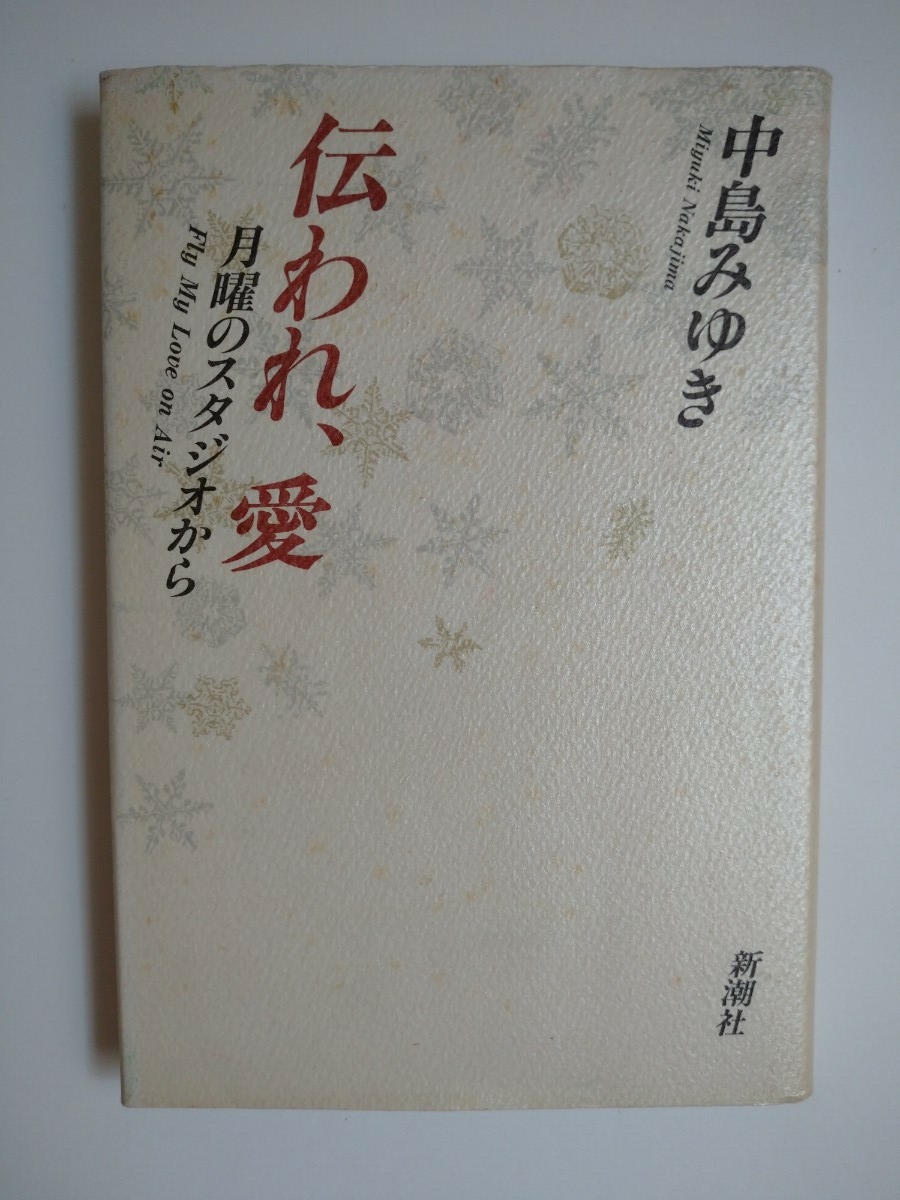 中島みゆき
Miyuki Nakajima
伝われ、愛
月曜のスタジオから
Fly My Love on Air
新潮社